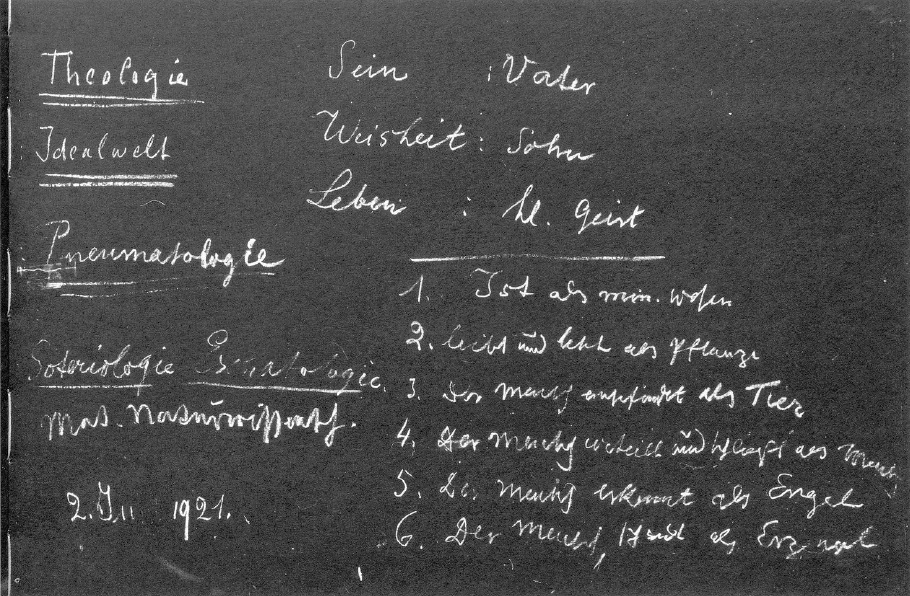 Theologie
Idealwelt
Pneumatologie
Soteriologie
Mat. Naturwissensch.
2. 1921.
Sein : Vater
Weisheit : Sohn
Leben : hl. Geist
1. Ist als min. Wesen
2. leibt und lebt als Pflanze
3. Der Mensch empfindet als Tier
4. Der Mensch urteilt und schließt als Mensch
5. Der Mensch erkennt als Engel
6. Der Mensch als